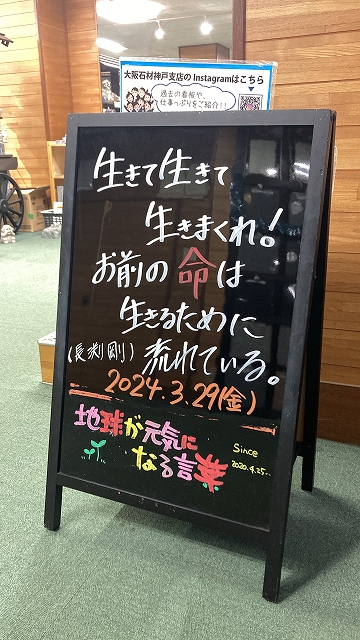 大阪石材神戸支店の Instagramはこちら
過去の看板や、
仕事っぷりをご紹介!!
生きて生きて
生きまくれ!
お前の命は
生きるために
(長渕剛) 流れている。
2024.3.29(金)
地球が元気に
なる言葉
Since
2020.4.25~